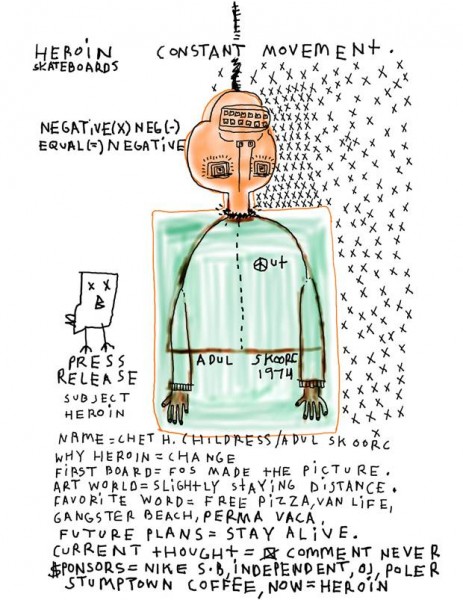 HEROIN
SKATEBOARDS
CONSTANT MOVEMENT.
NEGATIVE(X) NEG(-)
EQUAL(=) NEGATIVE
☮ut
ADUL SKOORC
1974
PRESS
RELEASE
SUBJECT
HEROIN
NAME=CHET H. CHILDRESS/ADUL SKOORC
WHY HEROIN=CHANGE
FIRST BOARD=FOS MADE THE PICTURE.
ART WORLD=SLIGHTLY STAYING DISTANCE.
FAVORITE WORD=FREE PIZZA, VAN LIFE,
GANGSTER BEACH, PERMA VACA,
FUTURE PLANS=STAY ALIVE.
CURRENT tHOUGHT= COMMENT NEVER
$PONSORS=NIKE S.B, INDEPENDENT, OJ, POLER
STUMPTOWN COFFEE, NOW=HEROIN